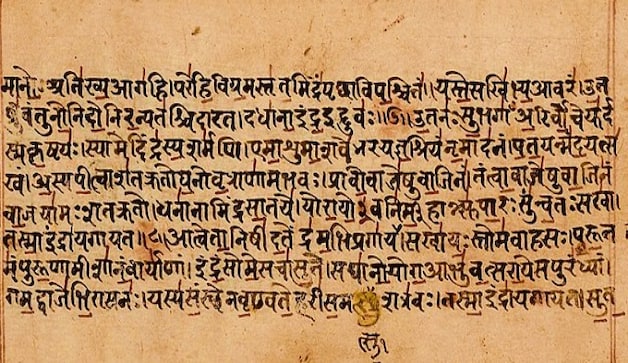 मानो॒ अति॑ख्य॒ आग॑हि। परे॑हि॒विग्र॒मस्तृ॑त॒मिंद्रं॑पृच्छाविप॒श्चितं॑।। यस्ते॒सखि॑भ्य॒आवरं॑। उ॒त
ब्रु॑वंतुनो॒निदो॒निर॒न्यत॑श्चिदारत। दधा॑ना॒इंद्र॒इद्दुवः॑।।७।। उ॒तनः॑सु॒भगाँ॑ अ॒रिर्वो॒चेयु॑र्द
स्मकृ॒ष्टयः॑। स्यामेदिंद्र॑स्य॒शर्म॑णि। एमा॒शुमा॒शवे॑भरयज्ञ॒श्रियं॑नृ॒मादनं॑। प॒त॒यन्मं॑द॒यत्स
खं॑। अ॒स्यपी॒त्वाश॑तक्रतोघ॒नोवृ॒त्राणा॑मभवः। प्रावो॒वाजे॑षुवा॒जिनं॑। तंत्वा॒वाजे॑षुवा॒जिनं॑
वा॒जया॑मःशतक्रतो। धना॑नामिंद्रसा॒तये॑। योरा॒यो॒३॒॑वनि॑र्म॒हान्त्सु॑पा॒रःसु॑न्व॒तःसखा॑।
तस्मा॒इंद्रा॑यगायत।।८।। आत्वेता॒निषी॑द॒तेंद्र॑म॒भिप्रगा॑यत। सखा॑य॒ःस्तोम॑वाहसः। पु॒रू॒त
मं॑पुरू॒णामीशा॑नं॒वार्या॑णां। इंद्रं॒सोमे॒सचा॑सु॒ते। सघा॑नो॒योग॒आभु॑व॒त्सरा॒येसपुरं॑ध्यां।
गम॒द्वाजे॑भि॒रासनः॑। यस्य॑सं॒स्थेनवृ॒ण्वते॒हरी॑स॒मत्सु॒शत्र॑वः। तस्मा॒इंद्रा॑यगायत। सु॒त
त्सु।